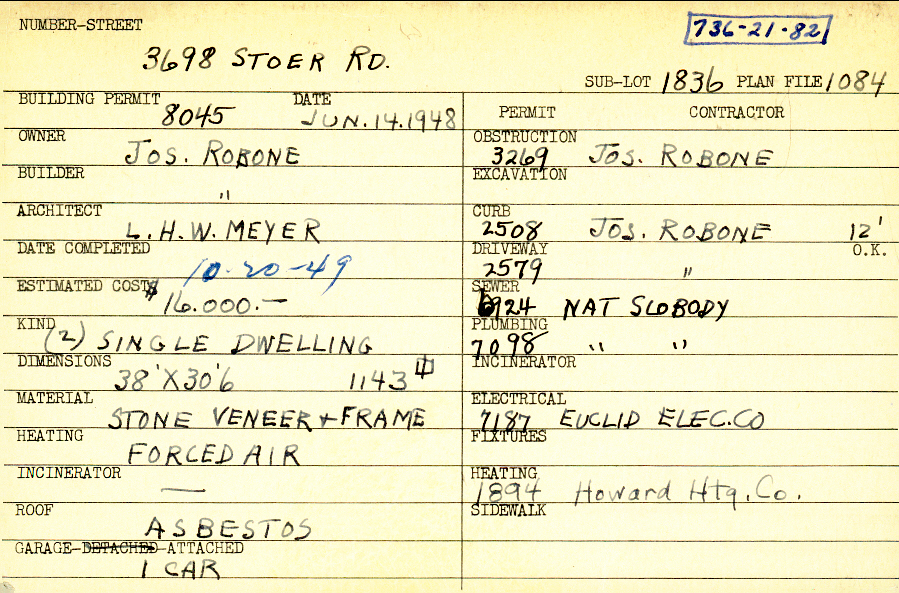 NUMBER-STREET
736-21-82
3698 STOER RD.
SUB-LOT 1836 PLAN FILE 1084
BUILDING PERMIT 8045 DATE JUN.14.1948
OWNER JOS. ROBONE
BUILDER "
ARCHITECT L.H.W. MEYER
DATE COMPLETED 10-20-49
ESTIMATED COST $16.000.—
KIND (2) SINGLE DWELLING
DIMENSIONS 38'X30'6 1143
MATERIAL STONE VENEER + FRAME
HEATING FORCED AIR
INCINERATOR —
ROOF ASBESTOS
GARAGE-DETACHED-ATTACHED
1 CAR
PERMIT CONTRACTOR
OBSTRUCTION
3269 JOS. ROBONE
EXCAVATION
CURB
2508 JOS. ROBONE 12'
DRIVEWAY O.K.
2579 "
SEWER
6924 NAT SLOBODY
PLUMBING
7098 " "
INCINERATOR
ELECTRICAL
7187 EUCLID ELEC.CO
FIXTURES
HEATING
1894 Howard Htg. Co.
SIDEWALK